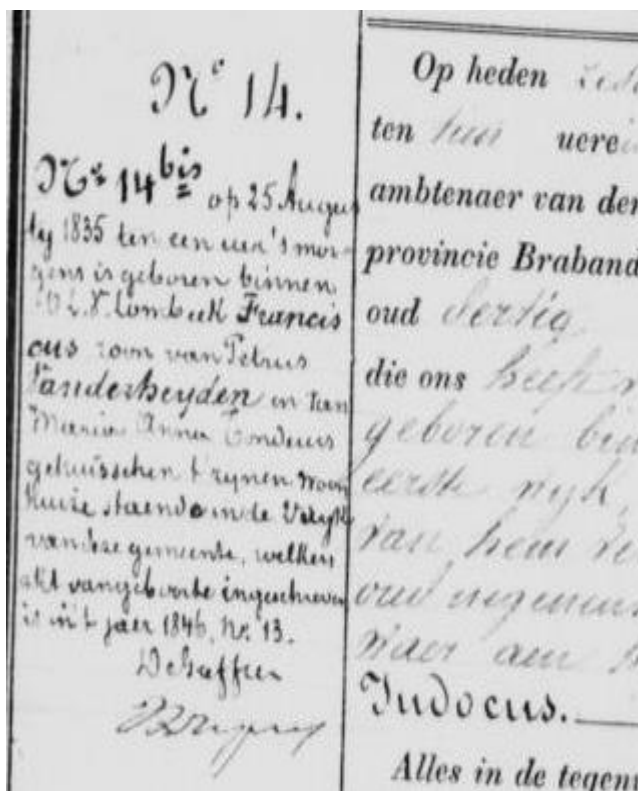 No 14.
No 14 bis op 25 Augus
ty 1835 ten een uer 's mor-
gens is geboren binnen
O. L. V. Lombeek Francis
cus zoon van Petrus
Vanderheyden en van
Maria Anna
gehuisschen t zynen woon
huize staende in de
van deze gemeente, welken
akt van geboorte ingeschreven
is in 't jaer 1846, No. 13.
Op heden
ten uere
ambtenaer van der
provincie Braband
oud dertig
die ons heeft
geboren bin
eerste wyk,
van hem
oud negenen
Waer aen
Judocus.
Alles in de tegen